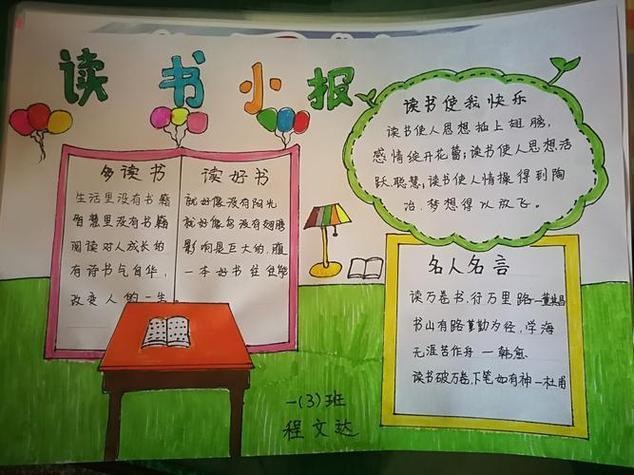 读书小报
多读书 读好书
生活里没有书籍 就好像没有阳光
智慧里没有书籍 就好像鸟没有翅膀
阅读对人成长的 影响是巨大的,腹
有诗书气自华, 一本好书往往能
改变人的一生。
读书使我快乐
读书使人思想插上翅膀,
感情绽开花蕾;读书使人思想活
跃,聪慧;读书使人情操得到陶
冶,梦想得以放飞。
名人名言
读万卷书,行万里路—董其昌
书山有路勤为径,学海
无涯苦作舟 —韩愈
读书破万卷,下笔如有神—杜甫
一(3)班
程文达